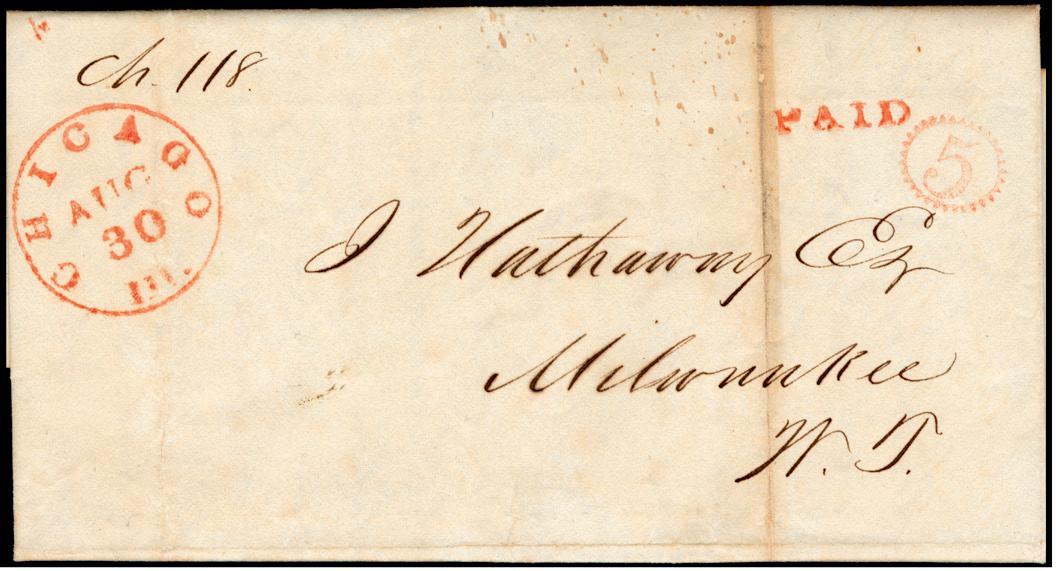 Ch. 118.
CHICAGO Ill.
AUG
30
PAID
5
J Hathaway Esq
Milwaukee
W. T.